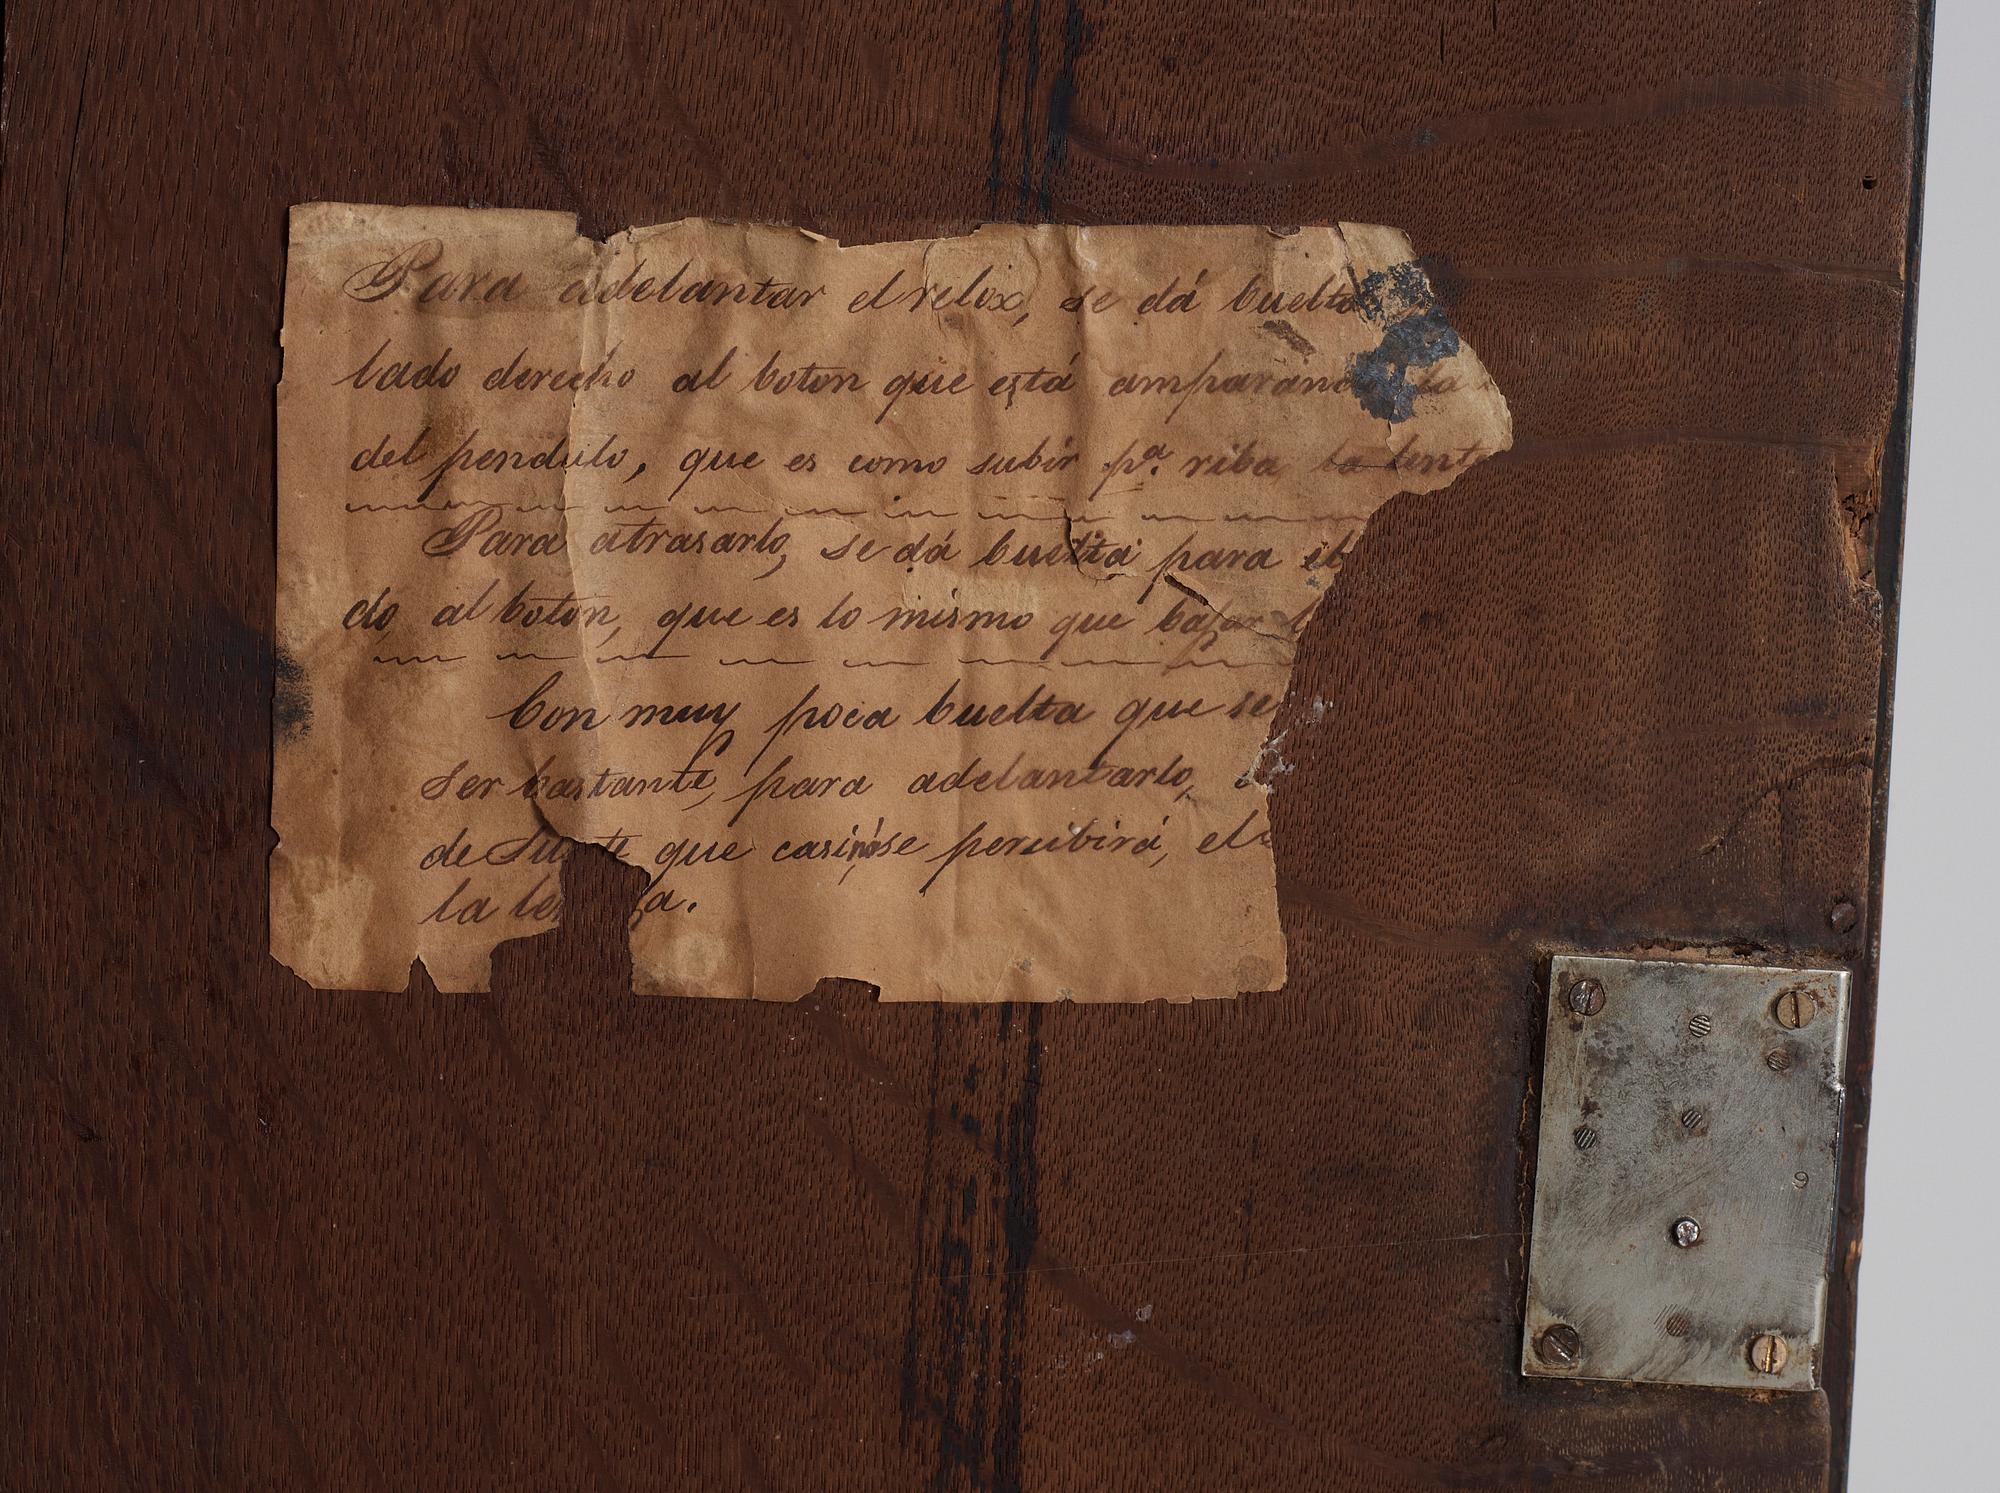 Para adelantar el relox, se dá buelta
lado derecho al boton que está amparando la
del pendulo, que es como subir pª. riba la lent
Para atrasarlo, se dá buelta para el
do al boton, que es lo mismo que bajar l
Con muy poca buelta que se
ser bastante, para adelantarlo,
de que casi nó se percibirá, el
la
9